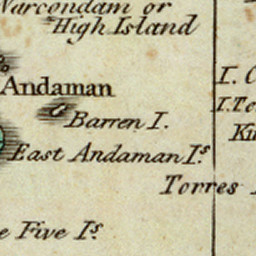 Narcondam or
High Island
Andaman
I.
Barren I.
East Andaman Is.
Torres
Five Is.